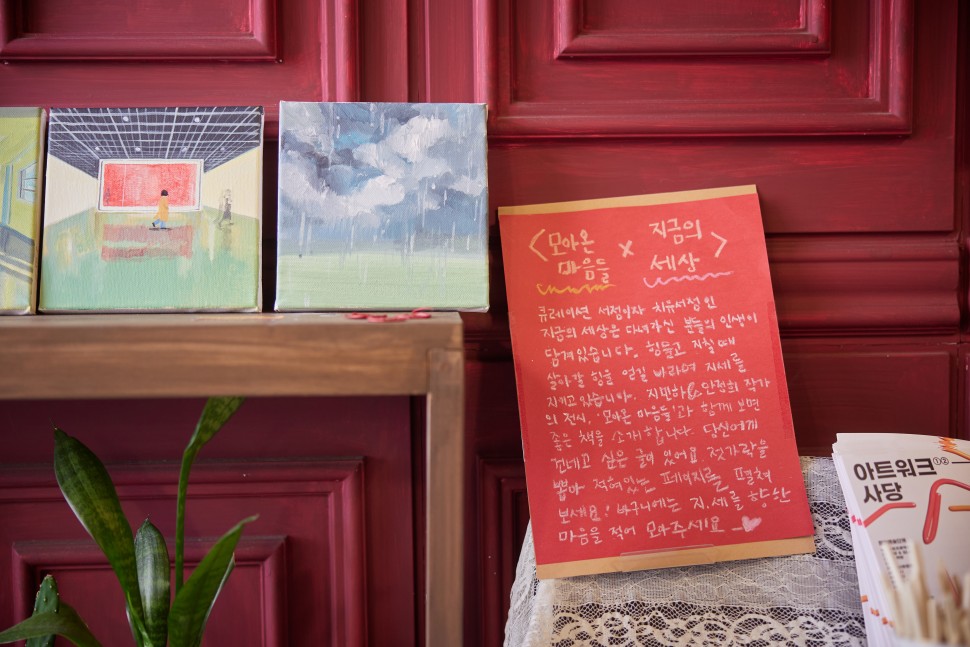 <모아온 마음들 × 지금의 세상>
큐레이션 서점이자 치유서점 인
지금의 세상은 다녀가신 분들의 인생이
담겨있습니다. 힘들고 지칠 때
살아갈 힘을 얻길 바라며 지세를
지키고 있습니다. 지민하& 안정희 작가
의 전시, '모아온 마음들'과 함께 보면
좋은 책을 소개합니다. 당신에게
건네고 싶은 글이 있어요. 젓가락을
뽑아 적혀있는 페이지를 펼쳐
보세요! 바구니에는 지.세를 향한
마음을 적어 모아주세요
아트워크①②
사당